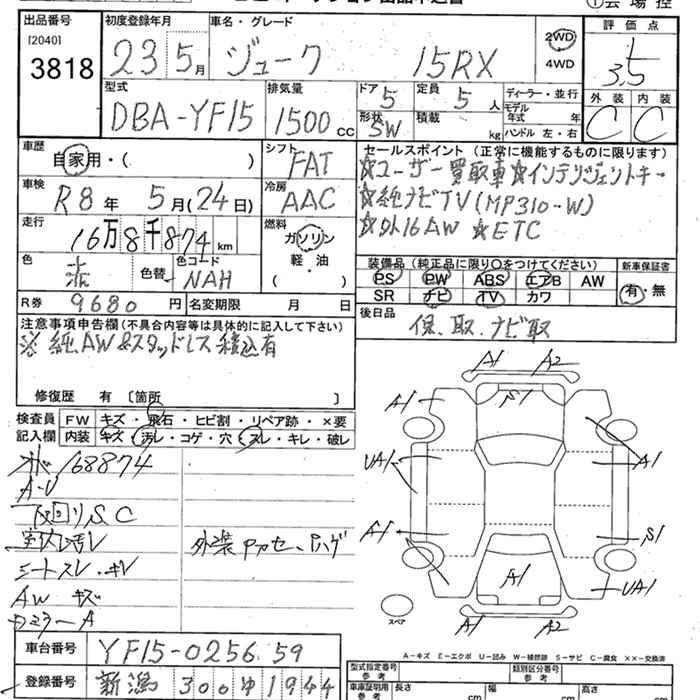 出品番号 初度登録年月 車名・グレード 評価点
[2040]
3818
23 5月 ジューク 15RX 2WD 4WD 3.5
型式 排気量 ドア 定員 ディーラー・並行 外装 内装
DBA-YF15 1500 CC 5 5人 モデル年式 年 C C
形状 積載 kg ハンドル 左・右
SW
車歴 シフト セールスポイント (正常に機能するものに限ります)
自家用・( ) FAT ☆ユーザー買取車☆インテリジェントキー
車検 冷房 ☆純ナビTV(MP310-W)
R8年 5月(24日) AAC ☆外16AW ☆ETC
走行 燃料
16万8千874km ガソリン
軽・油
( )
色 色替 色コード 装備品 (純正品に限り〇をつけてください) 新車保証書
NAH PS PW ABS エアB AW 有・無
SR ナビ TV カワ
R券 9680円 名変期限 月 日 後日品
保、取、ナビ取
注意事項申告欄(不具合内容等は具体的に記入して下さい)
※純AW&スタッドレス積込有
修復歴 有 〔箇所 〕
検査員 FW キズ・飛石・ヒビ割・リペア跡・×要
記入欄 内装 キズ・汚レ・コゲ・穴・スレ・キレ・破レ
168874
A-U
下回りSC
室内汚レ
シートスレ・キレ
AW キズ
ドミラーA
外装Pカセ、Pハゲ
A1 A2
A1 S1 A1
UA1 A1
A1 S1
A1 UA1
A1 A2
スペア
A-キズ E-エクボ U-凹み W-補修跡 S-サビ C-腐食 ××-交換済
車台番号 YF15-025659
登録番号 新潟 300ゆ1944
型式指定番号 参考 類別区分番号 参考
車庫証明用 参考 長さ cm 幅 cm 高さ cm